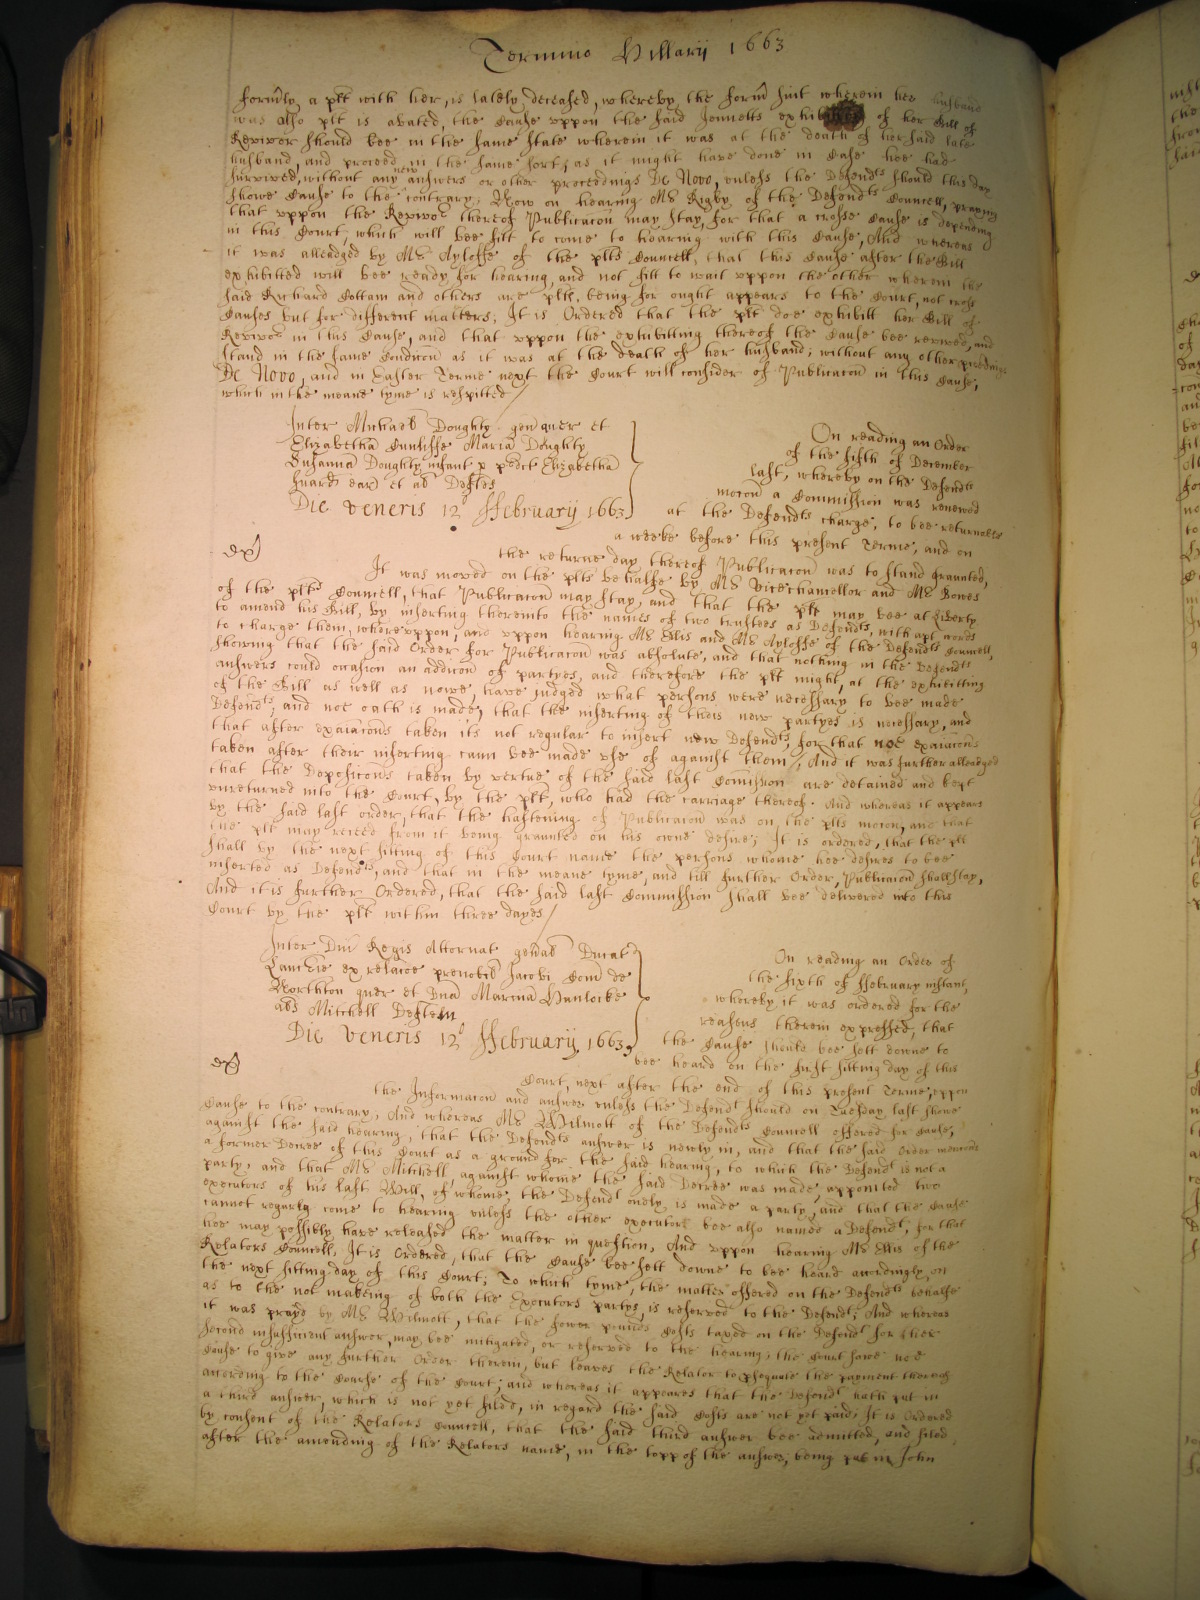 Termino Hillarij 1663
formly a plt with her, is lately deceased, whereby the form suit wherein her husband
was also plt is abated, the Cause vppon the said Jennetts exhibiting of her Bill of
Revivor should bee in the same state wherein it was at the death of her said late
husband, and proceed in the same sort, as it might have done in Case hee had
survived, without any new answers or other proceedings De Novo, vnless the Defendts should this day
showe Cause to the contrary; Now on hearing Mr Rigby of the Defendts Councell, praying
that vppon the Revivor thereof Publicacon may stay, for that a crosse Cause is depending
in this Court, which will bee fitt to come to hearing with this Cause, And whereas
it was alleadged by Mr Ayloffe of the plts Councell, that this Cause after the Bill
exhibitted will bee ready for hearing, and not fitt to wait vppon the other wherein the
said Richard Cottam and others are plts, being for ought appears to the Court, not cross
Causes but for different matters; It is Ordered that the plt doe exhibitt her Bill of
Revivor in this Cause, and that vppon the exhibitting thereof the Cause bee revived, and
stand in the same Condicon as it was at the death of her husband; without any other proceedings
De Novo, and in Easter Terme next the Court will consider of Publicacon in this Cause,
which in the meane tyme is respitted
Inter Michaell Doughty gen quer et
Elizabetha Cunliffe Maria Doughty
Susanna Doughty infant p pdict Elizabetha
guard ear et al Deftes
Die veneris 12 ffebruary 1663
On reading an Order
of the fifth of December
last, whereby on the Defendts
mocon a Commission was renewed
at the Defendts charge, to bee returnable
a weeke before this present Terme, and on
the returne day thereof Publicacon was to stand graunted,
It was moved on the plts behalfe by Mr Vicechancellor and Mr Bowes
of the plts Councell, that Publicacon may stay, and that the plt may bee at liberty
to amend his Bill, by inserting thereinto the names of two trustees as Defendts, with apt words
to charge them, wherevppon, and vppon hearing Mr Ellis and Mr Ayloffe of the Defendts Councell,
showing that the said Order for Publicacon was absolute, and that nothing in the Defendts
answers could occasion an addicon of partyes, and therefore the plt might, at the exhibitting
of the Bill as well as nowe, have judged what persons were necessary to bee made
Defendts, and noe oath is made, that the inserting of theis new partyes is necessary, and
that after exaiacons taken its not regular to insert new Defendts, for that noe exaiacons
taken after their inserting cann bee made vse of against them, And it was further alleadged
that the Deposicons taken by vertue of the said last Comission are detained and kept
vnreturned into the Court, by the plt, who had the carriage thereof. And whereas it appears
by the said last order, that the hastening of Publicacon was on the plts mocon, and that
the plt may receed from it being graunted on his owne desire; It is ordered, that the plt
shall by the next sitting of this Court name the persons whome hee desires to bee
inserted as Defendts, and that in the meane tyme, and till further Order, Publicacon shall stay,
And it is further Ordered, that the said last Commission shall bee delivered into this
Court by the plt within three dayes
Inter Dni Regis Attornat genal Ducat
Lancrie ex relacoe prenobil Jacobi Com de
Northton quer et Dna Marina Hunlocke
als Mitchell Deftem
Die veneris 12 ffebruary 1663
On reading an Order of
the sixth of ffebruary instant,
whereby it was ordered for the
reasons therein expressed, that
the Cause should bee sett downe to
bee heard on the first sitting day of this
Court, next after the end of this present Terme, vppon
the Informacon and answer vnless the Defendt should on Tuesday last showe
Cause to the contrary, And whereas Mr Wilmott of the Defendts Councell offered for Cause,
against the said hearing, that the Defendts answer is newly in, and that the said Order mencons
a former Decree of this Court as a ground for the said hearing, to which the Defendt is not a
party, and that Mr Mitchell, against whome the said Decree was made, appointed two
executors of his last Will, of whome, the Defendt onely is made a party, and that the Cause
cannot regarly come to hearing vnless the other executor bee also named a Defendt, for that
hee may possibly have released the matter in question, And vppon hearing Mr Ellis of the
Relators Councell, It is Ordered, that the Cause bee sett downe to bee heard accordingly, on
the next sitting day of this Court; To which tyme, the matter offered on the Defendts behalfe
as to the not makeing of both the Executors partys, is reserved to the Defendt; And whereas
it was prayd by Mr Wilmott, that the fower pounds Costs taxed on the Defendt for her
second insufficient answer, may bee mitigated, or reserved to the hearing; the Court sawe noe
Cause to give any further Order therein, but leaves the Relator to psequute the payment thereof
according to the Course of the Court; and whereas it appeares that the Defendt hath put in
a third answer, which is not yet filed, in regard the said Costs are not yet paid; It is Ordered
by consent of the Relators Councell, that the said third answer bee admitted, and filed,
after the amending of the Relators name, in the topp of the answer, being put in John